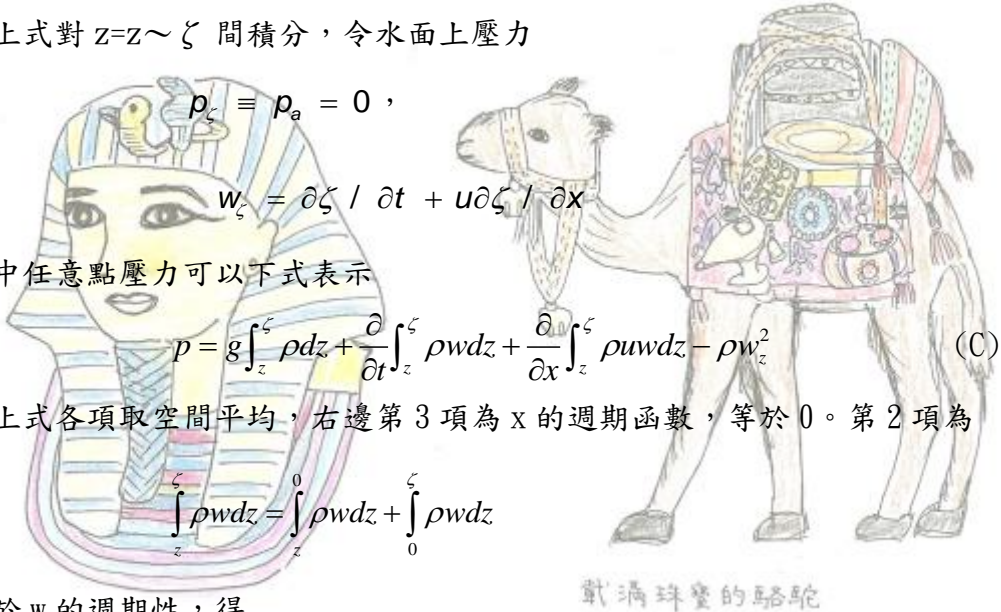 上式對 z=z～ζ 間積分，令水面上壓力
p_ζ ≡ p_a = 0，
w_ζ = ∂ζ / ∂t + u∂ζ / ∂x
中任意點壓力可以下式表示
p = g∫_z^ζ ρdz + ∂/∂t ∫_z^ζ ρwdz + ∂/∂x ∫_z^ζ ρuwdz − ρw_z^2 (C)
上式各項取空間平均，右邊第 3 項為 x 的週期函數，等於 0。第 2 項為
∫_z^ζ ρwdz = ∫_z^0 ρwdz + ∫_0^ζ ρwdz
戴滿珠寶的駱駝
於 w 的週期性，得